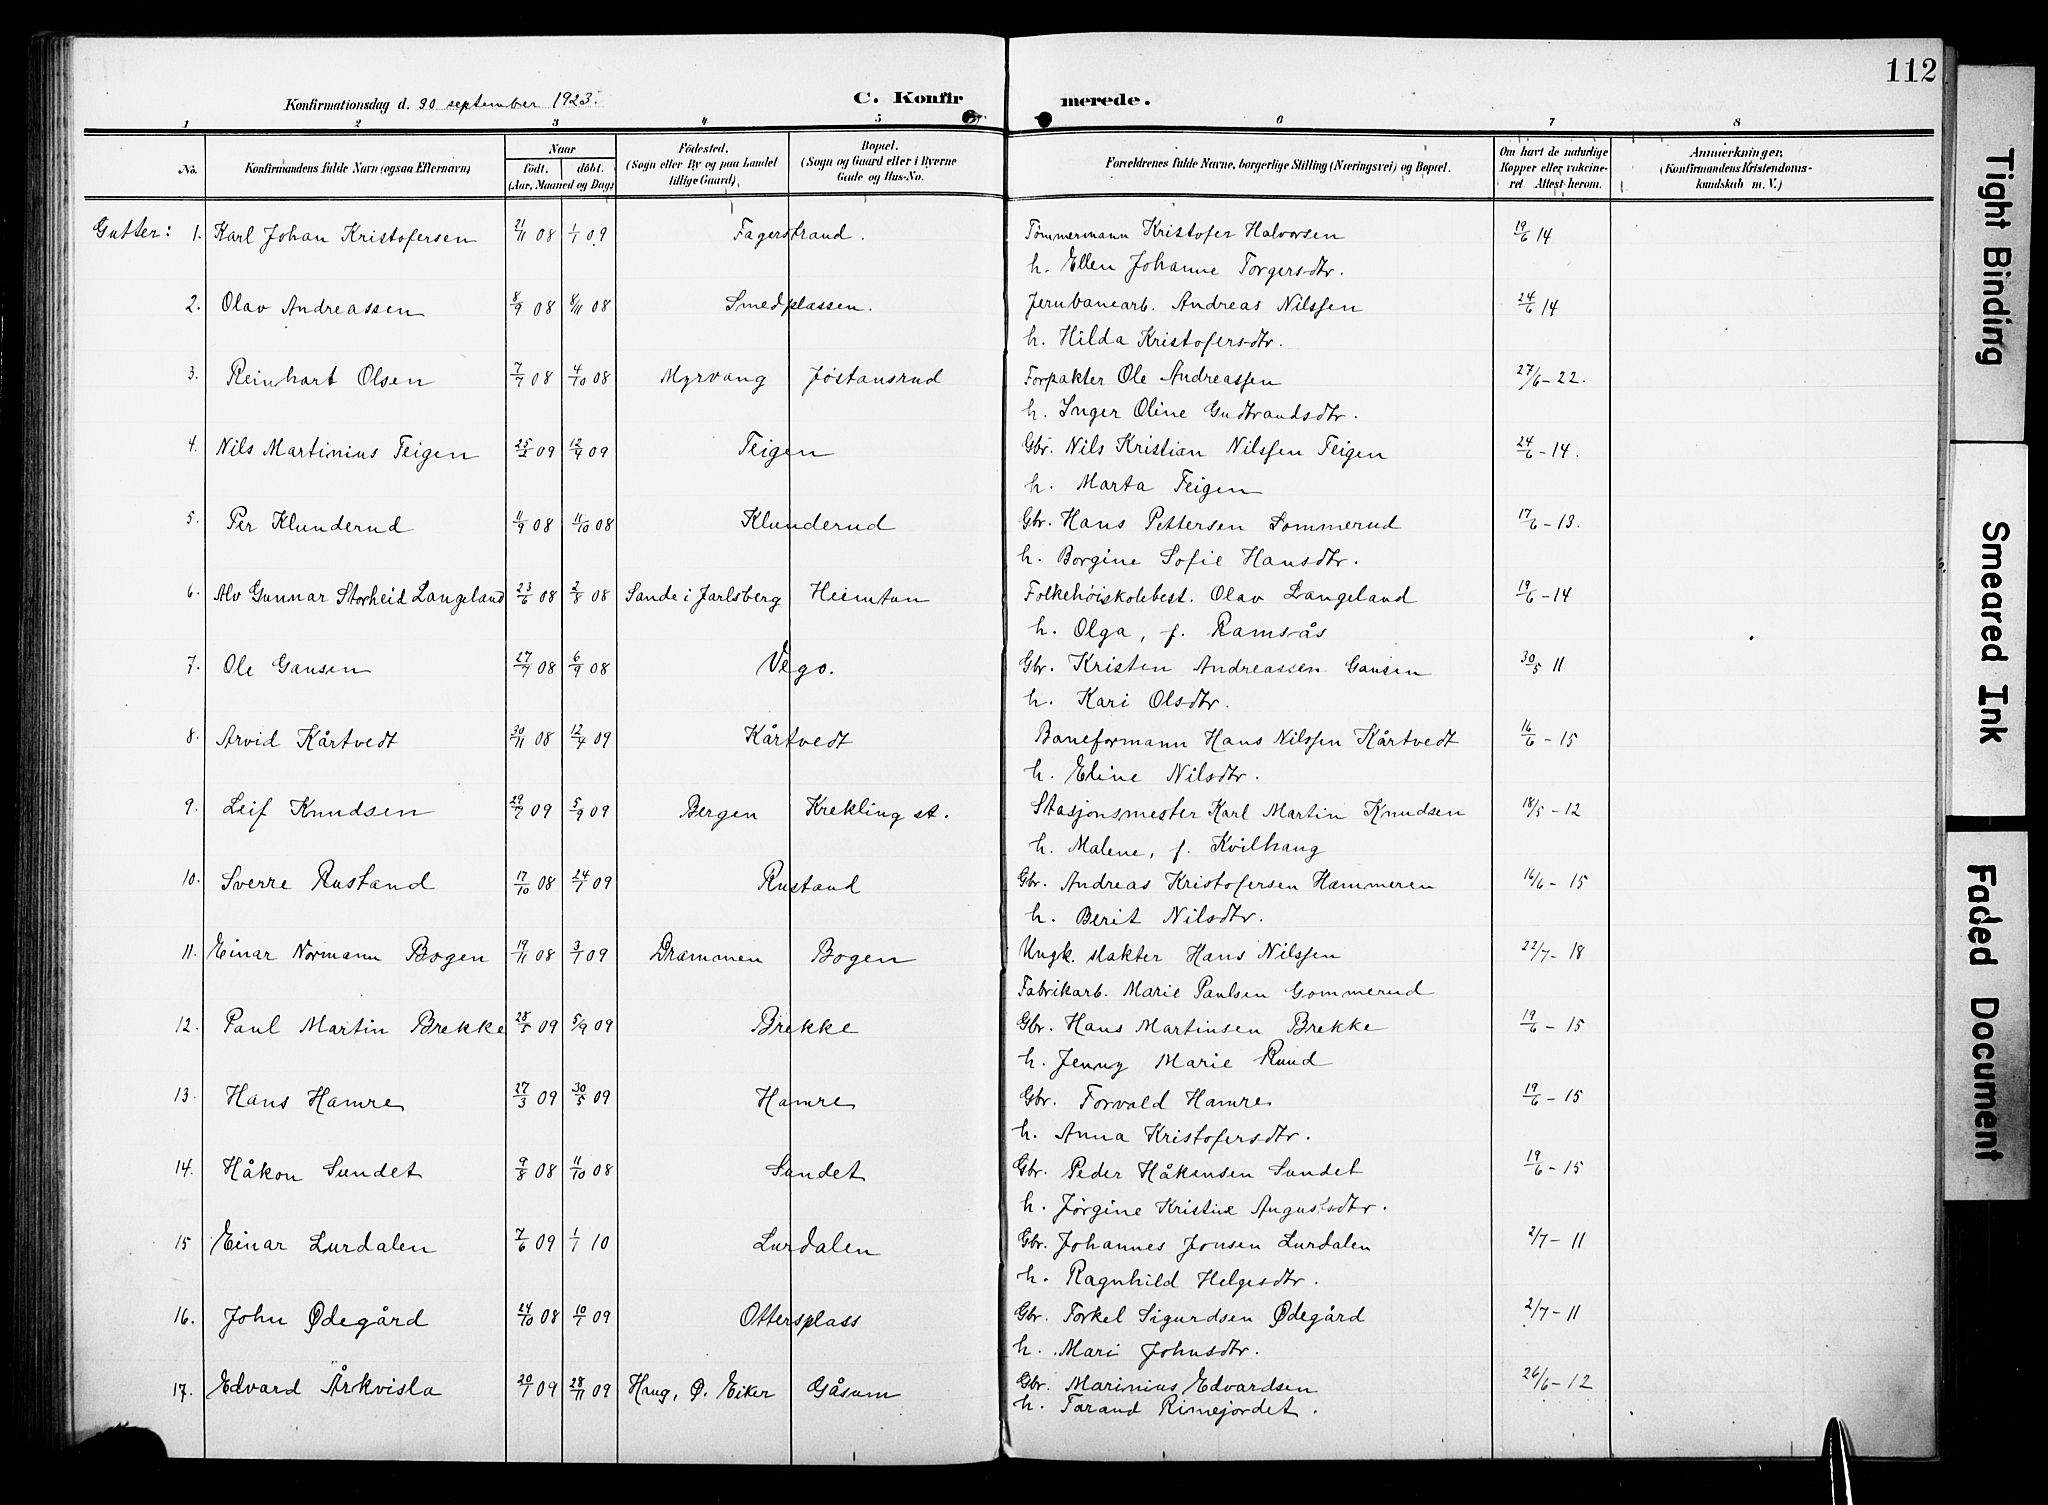 112
Konfirmationsdag d. 30 september 1923.
C. Konfirmerede.
1 2 3 4 5 6 7 8
No. Konfirmandens fulde Navn (ogsaa Efternavn) Naar født. døbt. (Aar, Maaned og Dag) Fødested. (Sogn eller By og paa Landet tillige Gaard). Bopæl. (Sogn og Gaard eller i Byerne Gade og Hus-No. Forældrenes fulde Navne, borgerlige Stilling (Næringsvei) og Bopæl. Om havt de naturlige Kopper eller vaccineret. Attest herom. Anmærkninger. (Konfirmandens Kristendomskundskab m. V.)
Gutter: 1. Karl Johan Kristofersen 21/11 08 1/1 09 Fagerstrand. Tømmermann Kristofer Halvorsen 19/6 14
h. Ellen Johanne Torgersdtr.
2. Olav Andreassen 8/9 08 8/11 08 Smedplassen. Jernbanearb. Andreas Nilssen 24/6 14
h. Hilda Kristofersdtr.
3. Reinhart Olsen 7/7 08 4/10 08 Myrvang Jøstansrud Forpakter Ole Andreassen 27/6-22.
h. Inger Oline Gudbrandsdtr.
4. Nils Martinius Teigen 25/2 09 12/4 09 Teigen Gbr. Nils Kristian Nilssen Teigen 24/6-14.
h. Marta Teigen
5. Per Klunderud 11/9 08 11/10 08 Klunderud Gbr. Hans Pettersen Sommerud 17/6-13.
h. Borgine Sofie Hansdtr.
6. Alv Gunnar Storheid Langeland 23/6 08 2/8 08 Sande i Jarlsberg Heimtun Folkehøiskolebest. Olav Langeland 19/6-14
h. Olga, f. Ramsås
7. Ole Gansen 27/7 08 6/9 08 Vego. Gbr. Kristen Andreassen Gansen 30/5 11
h. Kari Olsdtr.
8. Arvid Kårtvedt 30/11 08 12/4 09 Kårtvedt Baneformann Hans Nilssen Kårtvedt 16/6-15
h. Eline Nilsdtr.
9. Leif Knudsen 29/7 09 5/9 09 Bergen Krekling st. Stasjonsmester Karl Martin Knudsen 18/5-12
h. Malene, f. Kvilhaug
10. Sverre Rustand 17/10 08 24/1 09 Rustand Gbr. Andreas Kristofersen Hammeren 16/6-15
h. Berit Nilsdtr.
11. Einar Normann Bogen 19/11 08 3/1 09 Drammen Bogen Ungk. slakter Hans Nilssen 22/7-18
Fabrikarb. Marie Paulsen Gommerud
12. Paul Martin Brekke 28/5 09 5/9 09 Brekke Gbr. Hans Martinsen Brekke 19/6-15
h. Jenny Marie Ruud
13. Hans Hamre 27/3 09 30/5 09 Hamre Gbr. Torvald Hamre 19/6-15
h. Anna Kristofersdtr.
14. Håkon Sundet 9/8 08 11/10 08 Sundet Gbr. Peder Håkensen Sundet 19/6-15
h. Jørgine Kristine Augustsdtr.
15 Einar Lurdalen 7/6 09 1/1 10 Lurdalen Gbr. Johannes Jonsen Lurdalen 2/7-11
h. Ragnhild Helgesdtr.
16. John Ødegård 24/10 08 10/1 09 Ottersplass Gbr. Torkel Sigurdsen Ødegård 2/7-11
h. Mari Johnsdtr.
17. Edvard Årkvisla 20/1 09 28/11 09 Haug, Ø. Eiker Gåsum Gbr. Marinius Edvardsen 26/6-12
h. Tarand Rimejordet.
Tight Binding
Smeared Ink
Faded Document